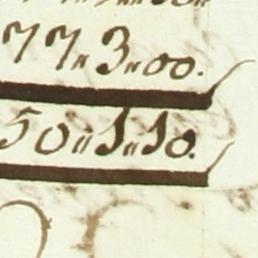 77〃3〃00.
50〃1〃10.